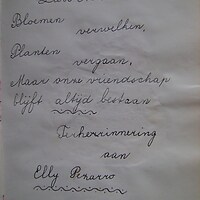 Bloemen
verwelken,
Planten
vergaan,
Maar onze vriendschap
blijft altijd bestaan
Ter herinnering
aan
Elly Pezarro